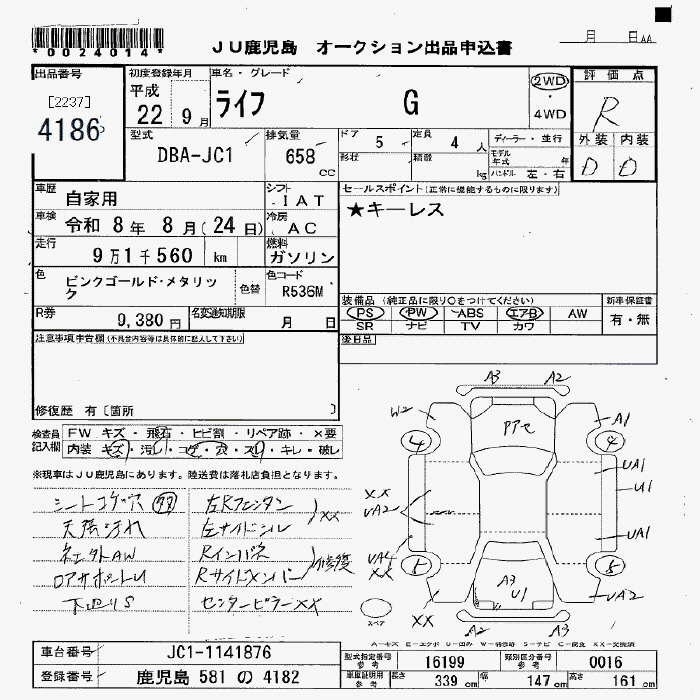 *0024014*
JU鹿児島 オークション出品申込書
月 日AA
出品番号
[2237]
4186
初度登録年月
平成
22 9月
車名・グレード
ライフ G
2WD
・
4WD
評価点
R
外装 内装
D D
型式
DBA-JC1
排気量
658
cc
ドア 5
定員 4 人
形状
積載 kg
ディーラー・並行
モデル年式 年
ハンドル 左・右
車歴 自家用
シフト IAT
車検 令和 8年 8月(24日)
冷房 AC
走行 9万1千560 km
燃料 ガソリン
色 ピンクゴールド・メタリック
色替
色コード R536M
R券 9,380円
名変通知期限 月 日
セールスポイント(正常に機能するものに限ります)
★キーレス
装備品(純正品に限り○をつけてください)
新車保証書
PS PW ABS エアB AW
有・無
SR ナビ TV カワ
後日品
注意事項申告欄(不具合内容等は具体的に記入して下さい)
修復歴 有〔箇所 〕
検査員記入欄
FW キズ・飛石・ヒビ割・リペア跡・×要
内装 キズ・汚レ・コゲ・穴・スレ・キレ・破レ
※現車はJU鹿児島にあります。陸送費は落札店負担となります。
シートコゲ穴
天張汚れ
下廻りS
左サイドシル
XX
Rインパネ
Rサイドメンバー
修復
センターピラーXX
A3 A2
W2
アアセ
A1
4 4
UA1
U1
XX
UA2
UA1
XX
5 5
A3
U1
UA2
XX
スペア
A2 A3
A=キズ E=エクボ U=凹み W=補修跡 S=サビ C=腐食 XX=交換済
車台番号 JC1-1141876
登録番号 鹿児島 581 の 4182
型式指定番号 参考 16199
類別区分番号 参考 0016
車庫証明用 参考 長さ 339 cm 幅 147 cm 高さ 161 cm